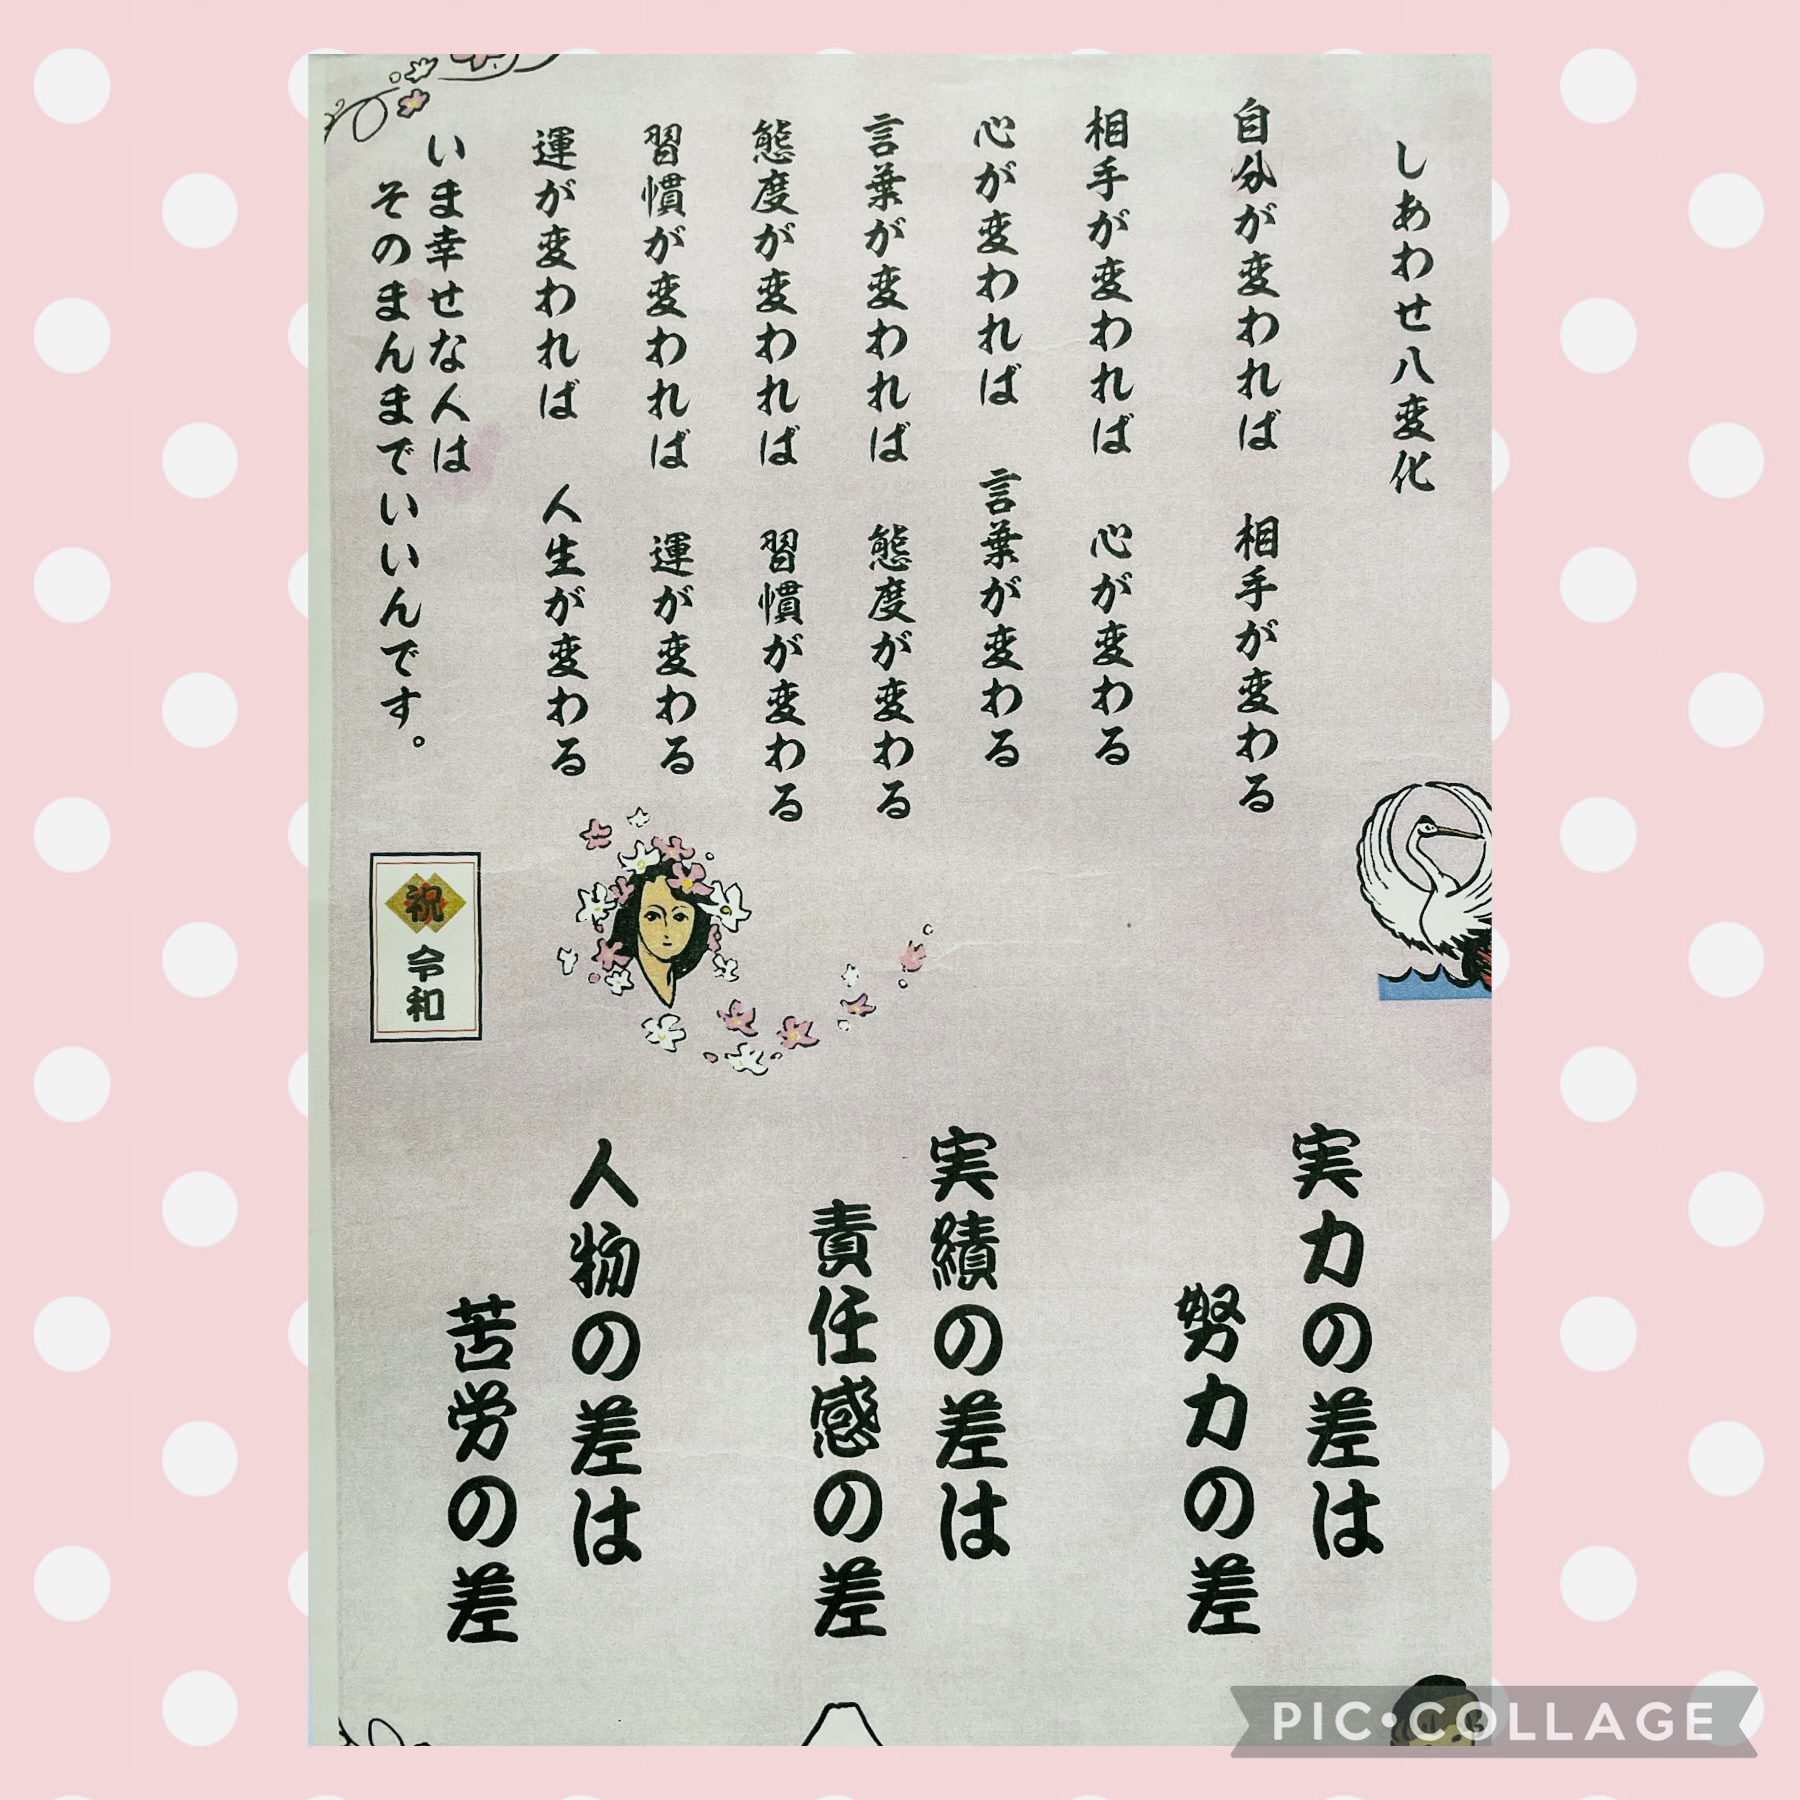 しあわせ八変化
自分が変われば　相手が変わる
相手が変われば　心が変わる
心が変われば　言葉が変わる
言葉が変われば　態度が変わる
態度が変われば　習慣が変わる
習慣が変われば　運が変わる
運が変われば　人生が変わる
いま幸せな人は
そのまんまでいいんです。
祝
令和
実力の差は
努力の差
実績の差は
責任感の差
人物の差は
苦労の差
PIC•COLLAGE